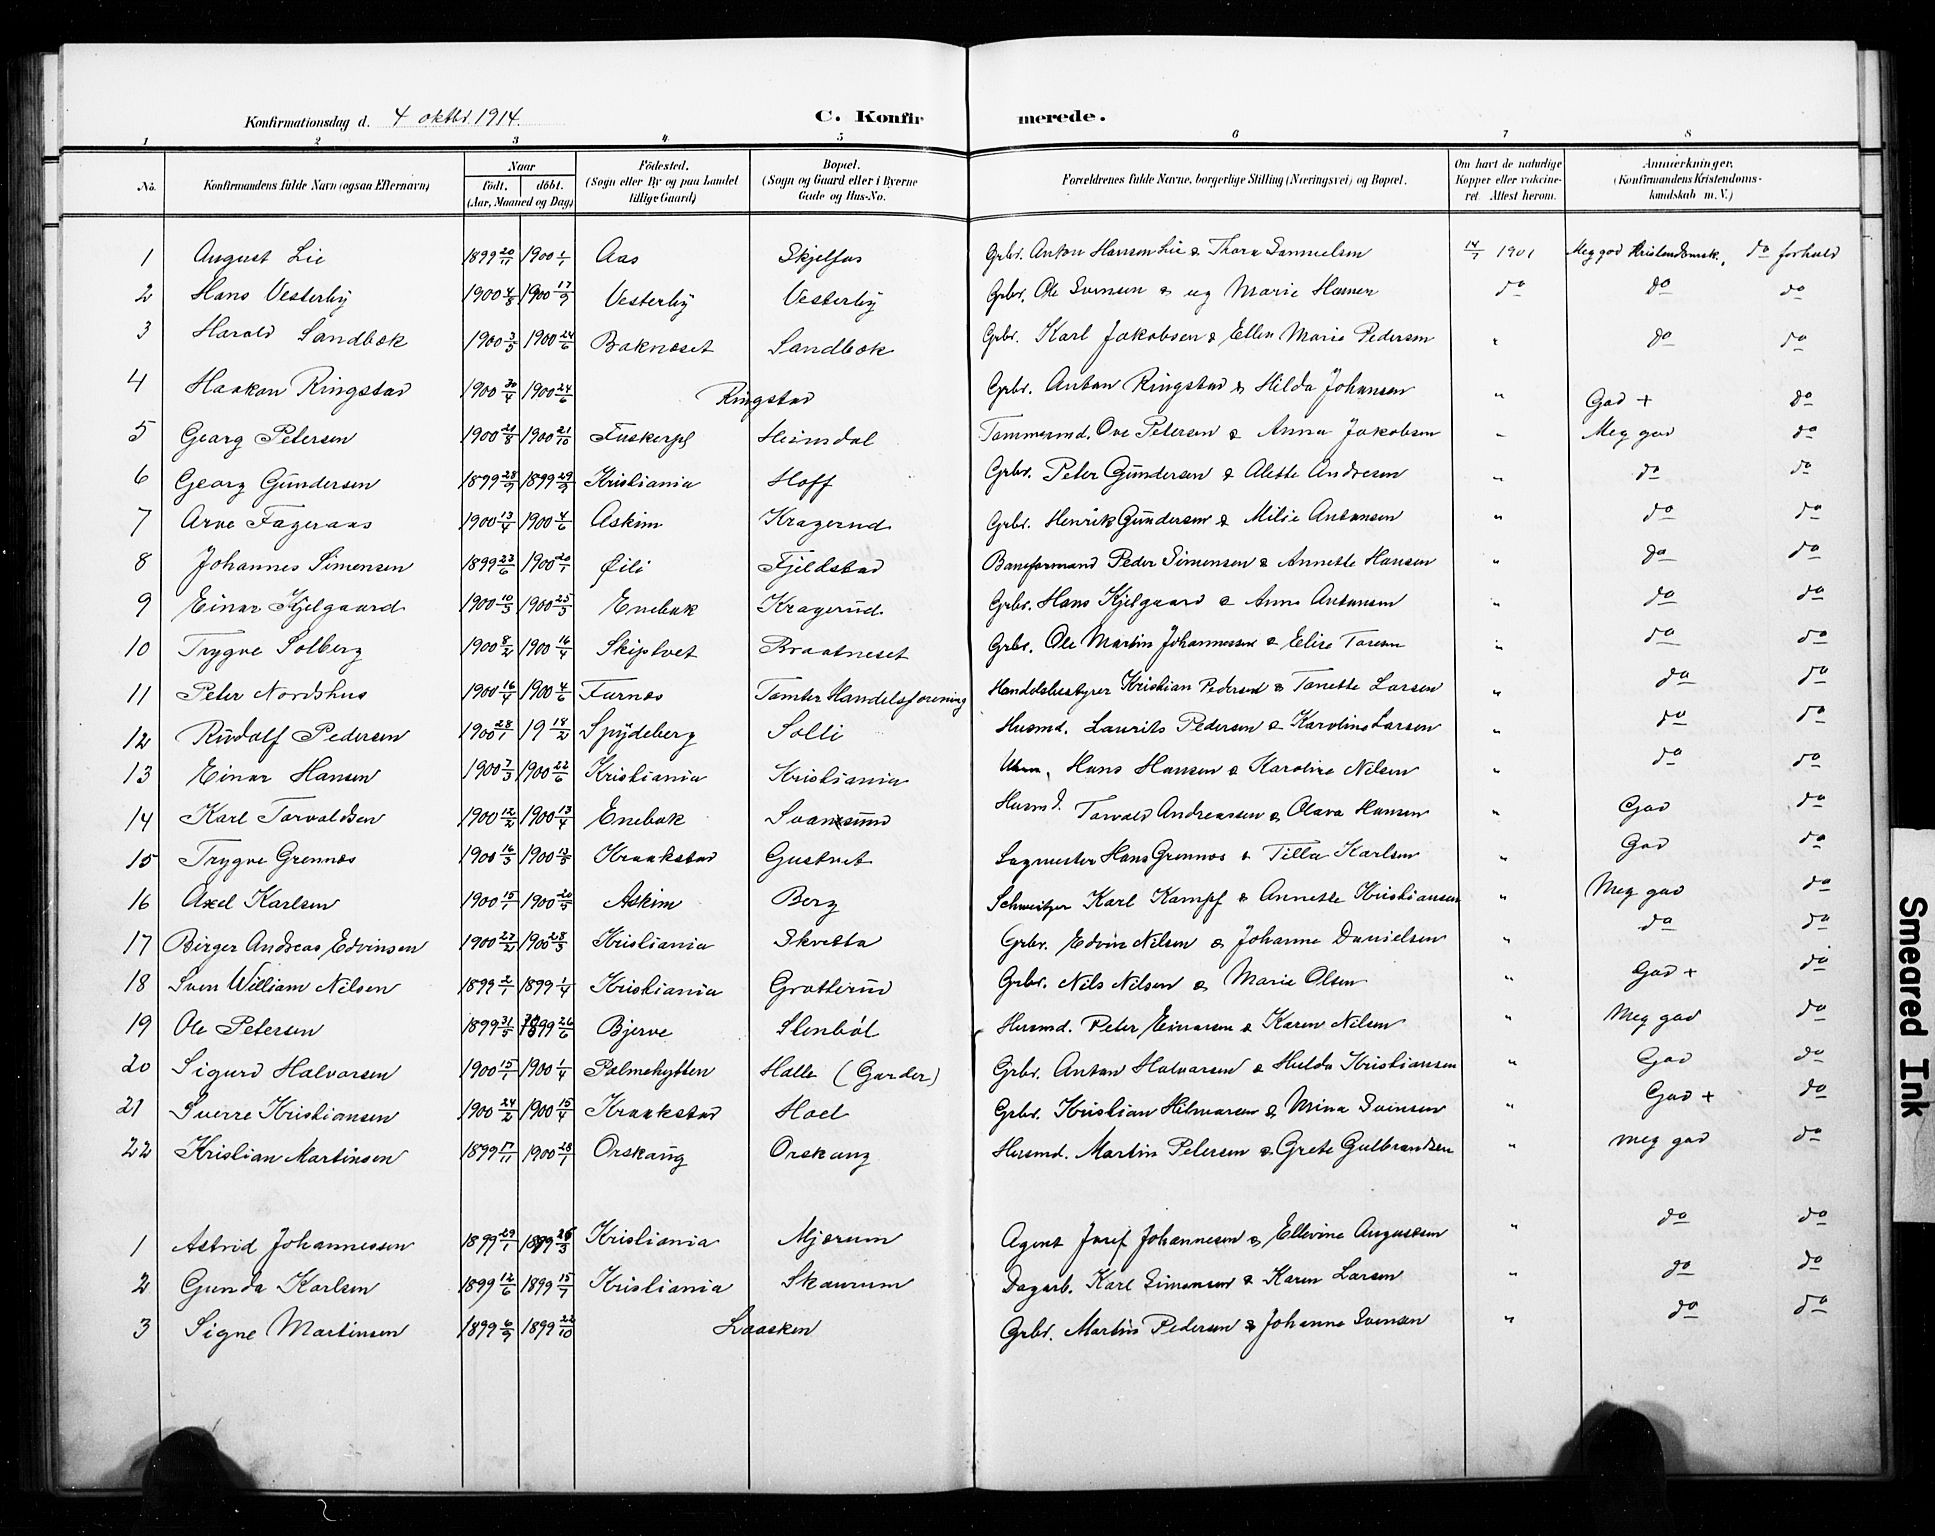 Konfirmationsdag d. 4 oktbr. 1914. C. Konfir merede.
1 2 3 4 5 6 7 8
No. Konfirmandens fulde Navn (ogsaa Efternavn) Naar födt. döbt. (Aar, Maaned og Dag) Födested. (Sogn eller By og paa Landet tillige Gaard) Bopæl. (Sogn og Gaard eller i Byerne Gade og Hus-No. Forældrenes fulde Navne, borgerlige Stilling (Næringsvei) og Bopæl. Om havt de naturlige Kopper eller vakcineret. Attest herom. Anmerkninger. (Konfirmandens Kristendomskundskab m. V.)
1 August Lie 1899 20/11 1900 1/1 Aas Skjelfos Grbr. Anton Hansen Lie & Thora Samuelsen 14/7 1901 Meg god Kristendomsk. do forhold
2 Hans Vesterby 1900 4/8 1900 17/9 Vesterby Vesterby Grbr. Ole Svensen & ug Marie Hansen do do do
3 Harald Sandbæk 1900 3/5 1900 24/6 Baknæset Sandbæk Grbr. Karl Jakobsen & Ellen Marie Pedersen " do do
4 Haakon Ringstad 1900 30/4 1900 24/6 Ringstad Grbr. Anton Ringstad & Hilda Johansen " God + do
5 Georg Petersen 1900 21/8 1900 21/10 Fuskerpl Heimdal Tømmermd. Ove Petersen & Anna Jakobsen " Meg god do
6 Georg Gundersen 1899 28/7 1899 29/9 Kristiania Hoff Grbr. Peter Gundersen & Alette Andresen " do do
7 Arne Fageraas 1900 13/4 1900 4/6 Askim Kragerud Grbr. Henrik Gundersen & Milie Antonsen " do do
8 Johannes Simensen 1899 23/6 1900 20/1 Øili Fjeldstad Baneformand Peder Simensen & Annette Hansen " do do
9 Einar Kjelgaard 1900 10/3 1900 25/5 Enebak Kragerud Grbr. Hans Kjelgaard & Anna Antonsen " do do
10 Trygve Solberg 1900 8/2 1900 16/4 Skiptvet Braatneset Grbr. Ole Martin Johannessen & Elise Toresen " do do
11 Peter Nordshus 1900 16/4 1900 4/6 Furnes Tomter Handelsforening Handelsbestyrer Kristian Pedersen & Tonette Larsen " do do
12 Rudolf Pedersen 1900 28/1 19 18/2 Spydeberg Solli Husmd. Laurits Pedersen & Karoline Larsen " do do
13 Einar Hansen 1900 7/3 1900 22/6 Kristiania Kristiania Hans Hansen & Karoline Nilsen " do do
14 Karl Torvaldsen 1900 12/2 1900 13/4 Enebak Svarsund Husmd. Torvald Andreassen & Olava Hansen " God do
15 Trygve Grennes 1900 16/3 1900 13/5 Kraakstad Gustvet Sagmester Hans Grennes & Tilla Karlsen " God do
16 Axel Karlsen 1900 15/1 1900 20/5 Askim Berg Schweitzer Karl Kampf & Annette Kristiansen " Meg god do
17 Birger Andreas Edvinsen 1900 23/2 1900 28/3 Kristiania Skvetta Grbr. Edvin Nilsen & Johanne Danielsen " do do
18 Sven William Nilsen 1899 2/1 1899 1/4 Kristiania Grotterud Grbr. Nils Nilsen & Marie Olsen " God + do
19 Ole Petersen 1899 31/5 1899 26/6 Bjerve Stenbøl Husmd. Peter Einarsen & Karen Nilsen " Meg god do
20 Sigurd Halvorsen 1900 15/1 1900 1/4 Palmehytten Halle (Garder) Grbr. Anton Halvorsen & Hulda Kristiansen " God do
21 Sverre Kristiansen 1900 24/2 1900 15/4 Kraakstad Hoel Grbr. Kristian Hilmarsen & Mina Svensen " God + do
22 Kristian Martinsen 1899 17/11 1900 28/1 Orskaug Orskaug Husmd. Martin Petersen & Grete Gulbrandsen " Meg god do
1 Astrid Johannessen 1899 29/1 1899 26/3 Kristiania Mjærum Agent Josef Johannesen & Ellevine Augustsen " do do
2 Gunda Karlsen 1899 12/6 1899 15/7 Kristiania Skaurum Dagarb. Karl Simensen & Karen Larsen " do do
3 Signe Martinsen 1899 6/9 1899 22/10 Laasken Grbr. Martin Pedersen & Johanne Svensen " do do
Smeared Ink